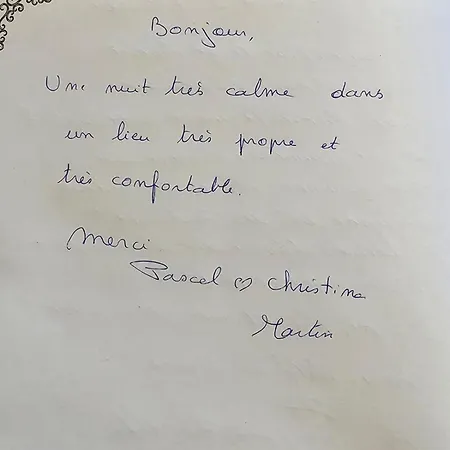 Bonjour,
Une nuit très calme dans
un lieu très propre et
très confortable.
Merci
Pascal ♡ Christine
Martin